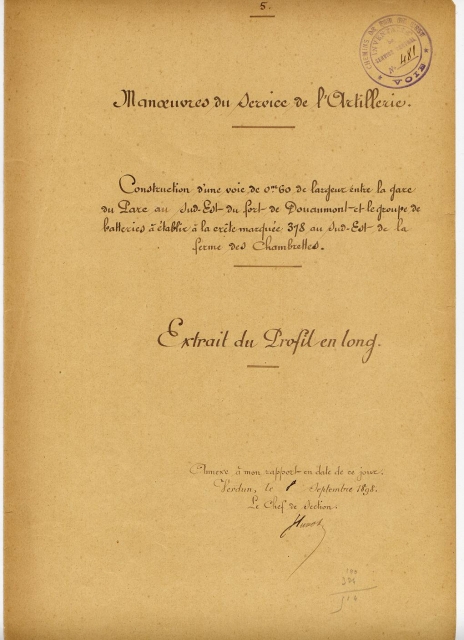 5.
CHEMINS DE FER DE L'EST
INVENTAIRE
N° 481
VOIE
Manœuvres du Service de l'Artillerie.
Construction d'une voie de 0m60 de largeur entre la gare
du Parc au Sud-Est du fort de Douaumont et le groupe de
batteries à établir à la crête marquée 378 au Sud-Est de la
ferme des Chambrettes.
Extrait du Profil en long.
Annexe à mon rapport en date de ce jour.
Verdun, le 8 Septembre 1898.
Le Chef de Section: